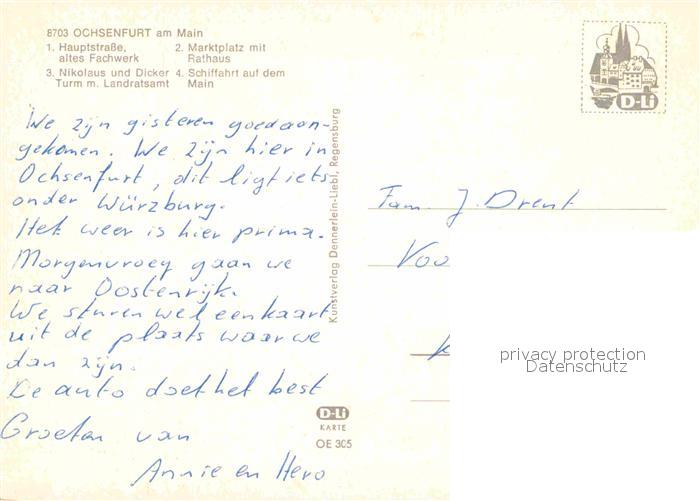 8703 OCHSENFURT am Main
1. Hauptstraße, altes Fachwerk
2. Marktplatz mit Rathaus
3. Nikolaus und Dicker Turm m. Landratsamt
4. Schiffahrt auf dem Main
D-Li
We zijn gisteren goed aan-
gekomen. We zijn hier in
Ochsenfurt, dit ligt iets
onder Würzburg.
Het weer is hier prima.
Morgenvroeg gaan we
naar Oostenrijk.
We sturen wel een kaart
uit de plaats waar we
dan zijn.
De auto doet het best
Groeten van
Annie en Hero
Kunstverlag Dennerlein-Liebl, Regensburg
D-Li
KARTE
OE 305
Fam. J. Drent
Voo
privacy protection
Datenschutz